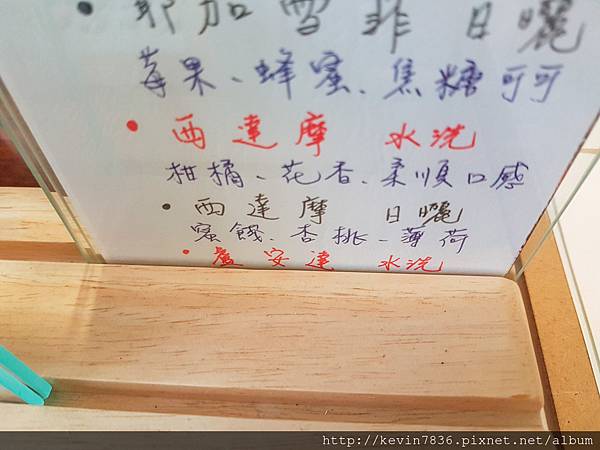 • 耶加雪菲 日曬
莓果、蜂蜜、焦糖可可
• 西達摩 水洗
柑橘、花香、柔順口感
• 西達摩 日曬
蜜餞、杏桃、薄荷
• 盧安達 水洗
http://kevin7836.pixnet.net/album